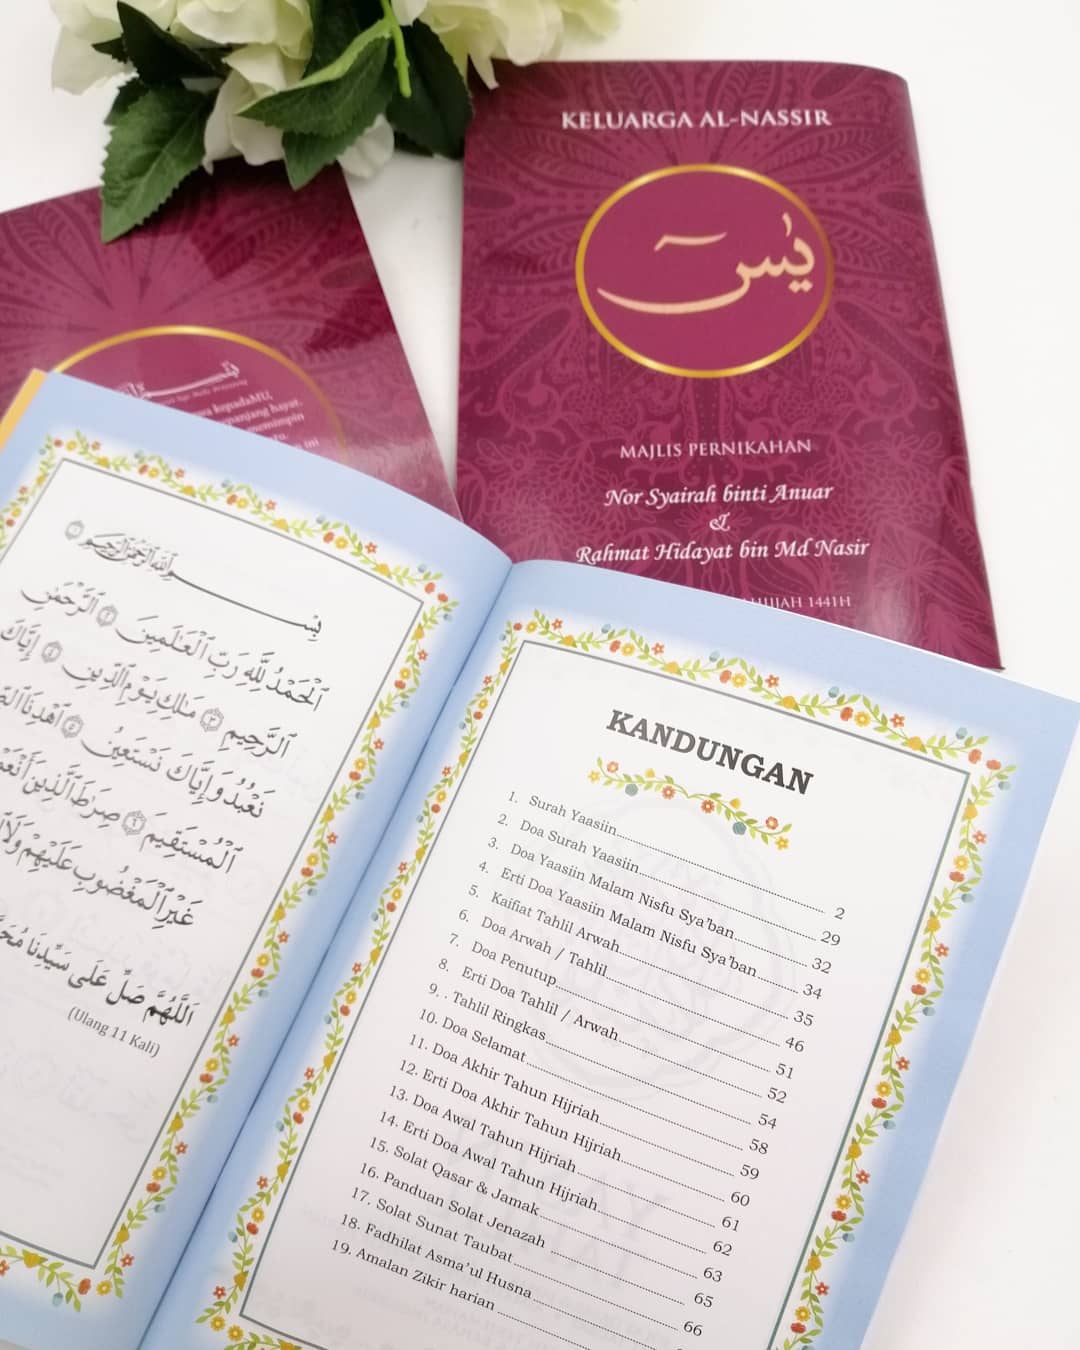 KELUARGA AL-NASSIR
يسٓ
MAJLIS PERNIKAHAN
Nor Syairah binti Anuar
&
Rahmat Hidayat bin Md Nasir
1441H
kepadaMU,
panjang hayat.
memimpin
ini
بِسْمِ ٱللَّهِ ٱلرَّحْمَٰنِ ٱلرَّحِيمِ ١
ٱلْحَمْدُ لِلَّهِ رَبِّ ٱلْعَٰلَمِينَ ٢ ٱلرَّحْمَٰنِ
ٱلرَّحِيمِ ٣ مَٰلِكِ يَوْمِ ٱلدِّينِ ٤ إِيَّاكَ
نَعْبُدُ وَإِيَّاكَ نَسْتَعِينُ ٥ ٱهْدِنَا
ٱلْمُسْتَقِيمَ ٦ صِرَٰطَ ٱلَّذِينَ
غَيْرِ ٱلْمَغْضُوبِ عَلَيْهِمْ
اَللّٰهُمَّ صَلِّ عَلَى سَيِّدِنَا
(Ulang 11 Kali)
KANDUNGAN
1. Surah Yaasiin 2
2. Doa Surah Yaasiin 29
3. Doa Yaasiin Malam Nisfu Sya'ban 32
4. Erti Doa Yaasiin Malam Nisfu Sya'ban 34
5. Kaifiat Tahlil Arwah 35
6. Doa Arwah / Tahlil 46
7. Doa Penutup 51
8. Erti Doa Tahlil / Arwah 52
9. . Tahlil Ringkas 54
10. Doa Selamat 58
11. Doa Akhir Tahun Hijriah 59
12. Erti Doa Akhir Tahun Hijriah 60
13. Doa Awal Tahun Hijriah 61
14. Erti Doa Awal Tahun Hijriah 62
15. Solat Qasar & Jamak 63
16. Panduan Solat Jenazah 65
17. Solat Sunat Taubat 66
18. Fadhilat Asma'ul Husna
19. Amalan Zikir harian